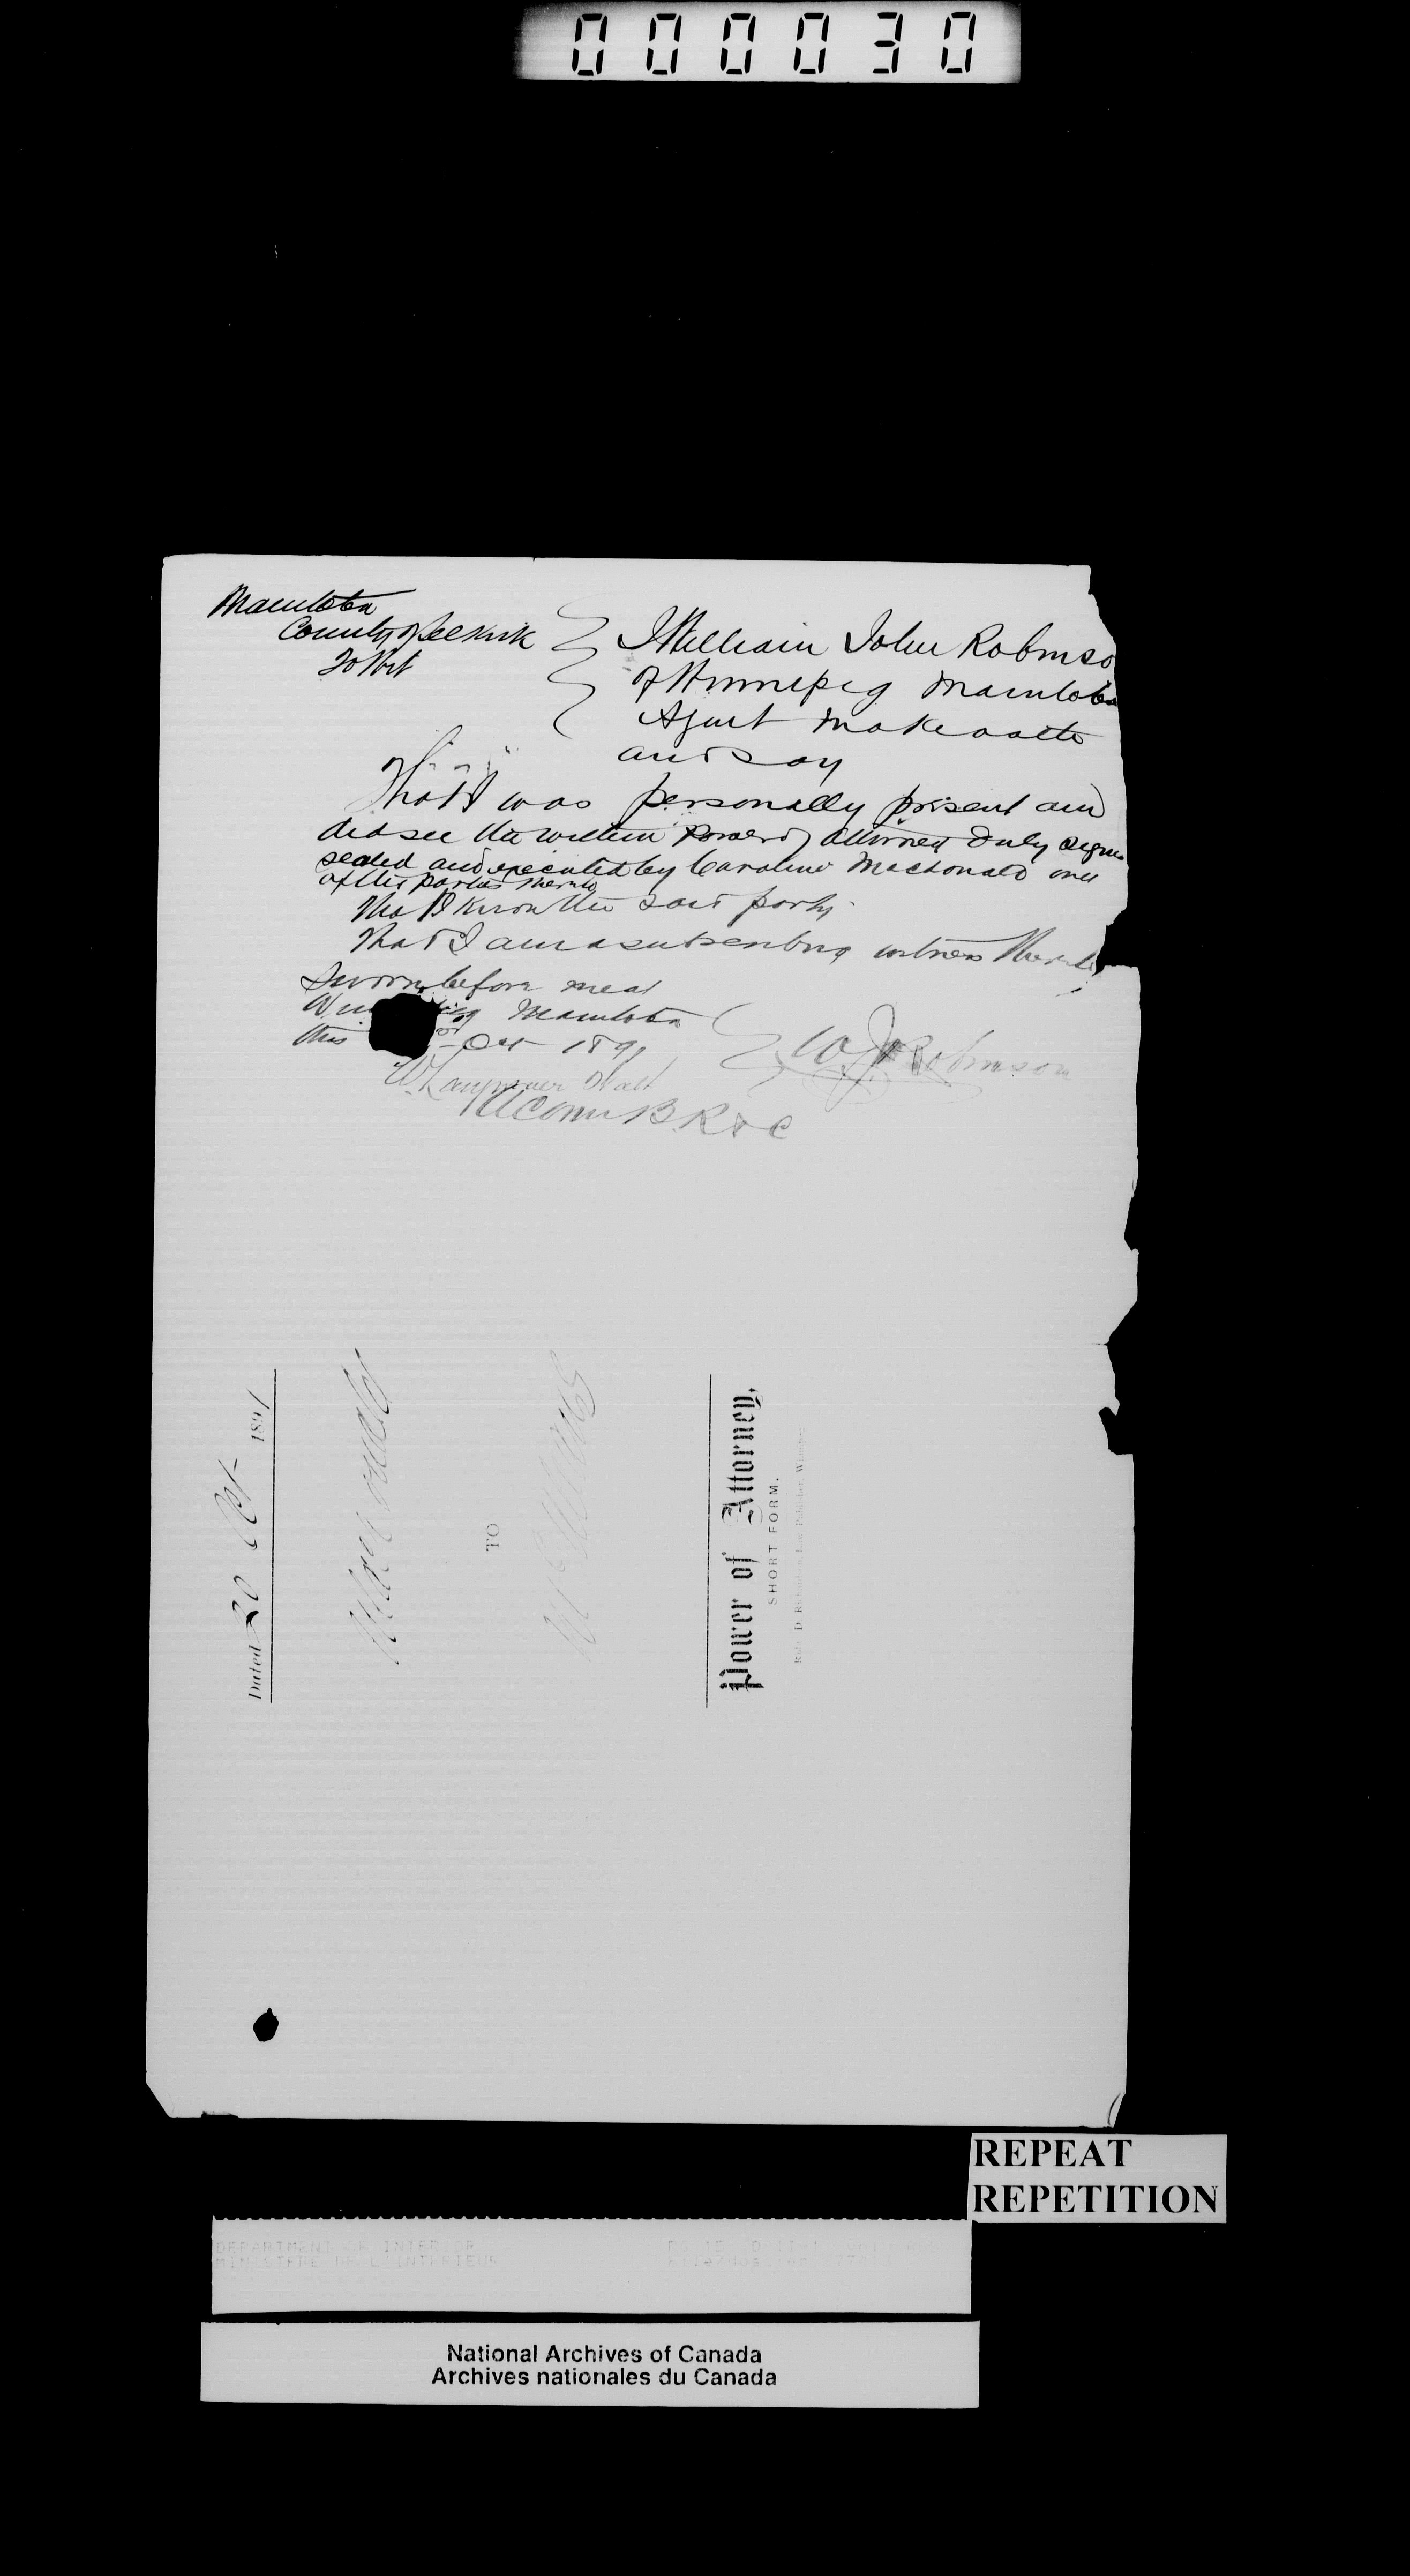 000030
Manitoba
County of Selkirk
To Wit
I William John Robinso
of Winnipeg Manitoba
Agent make oath
and say
That I was personally present and
did see the within Power of Attorney duly signed
sealed and executed by Caroline Macdonald one
of the parties thereto
That I know the said party
That I am a subscribing witness thereto
Sworn before me at
Manitoba
this Oct 1891
W J Robinson
A Comr B R &c
Dated 20 Oct 1891
Macdonald
TO
Power of Attorney,
SHORT FORM.
REPEAT
REPETITION
DEPARTMENT OF INTERIOR
MINISTERE DE L'INTERIEUR
National Archives of Canada
Archives nationales du Canada